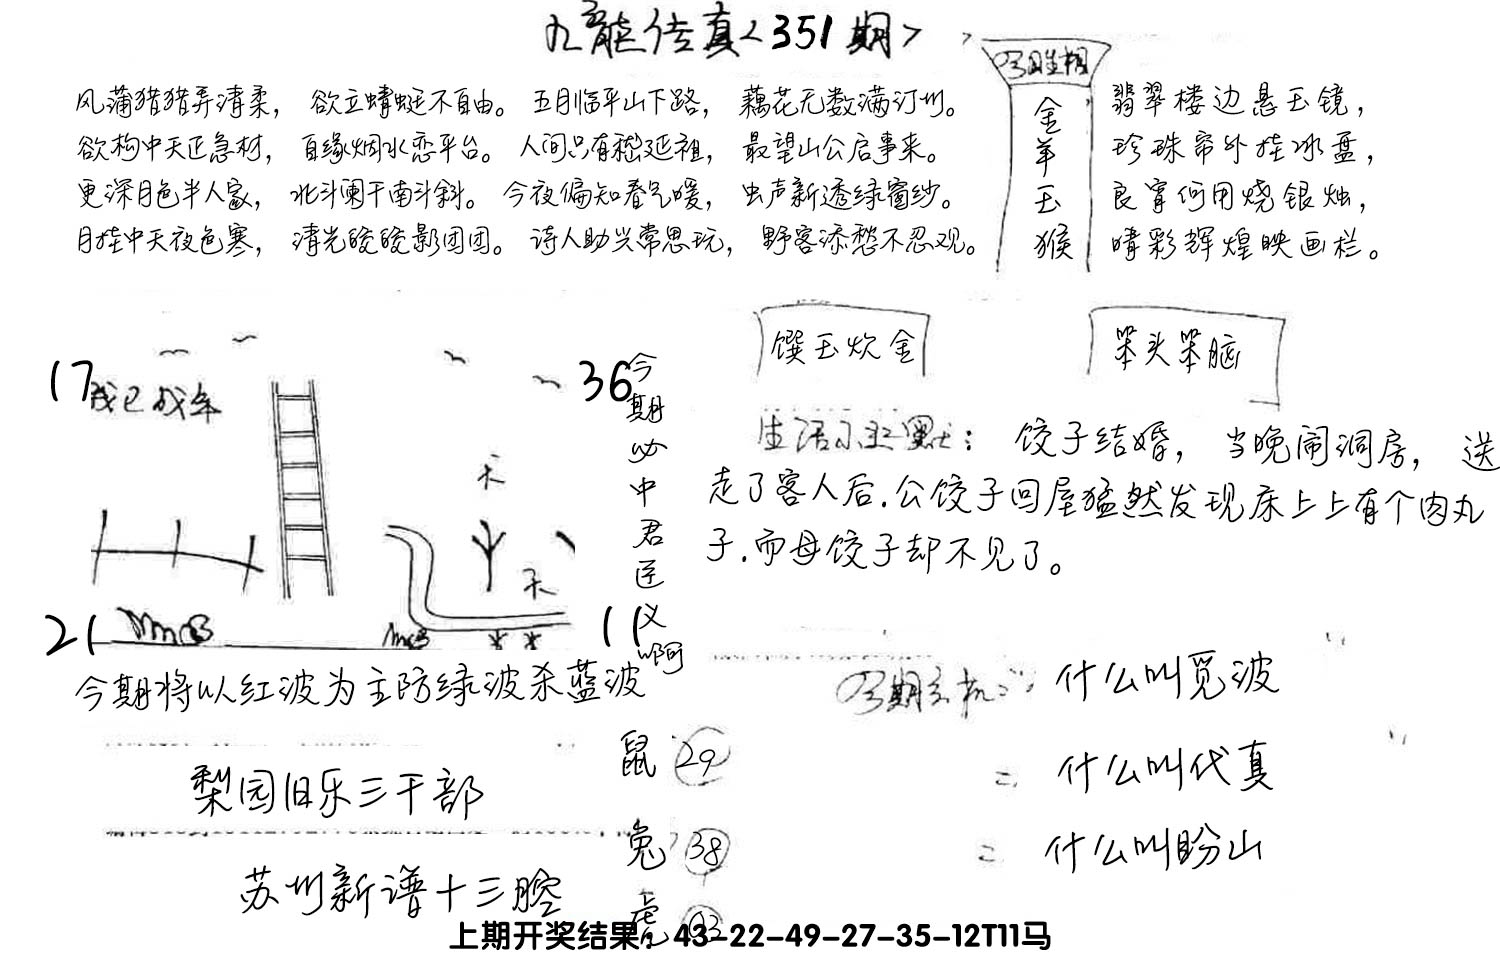 九龙传真<351期>
风蒲猎猎弄清柔，欲立蜻蜓不自由。五月临平山下路，藕花无数满汀州。
欲构中天正急材，自缘烟水恋平台。人间只有嵇延祖，最望山公启事来。
更深月色半人家，北斗阑干南斗斜。今夜偏知春气暖，虫声新透绿窗纱。
月挂中天夜色寒，清光皎皎影团团。诗人助兴常思玩，野客添愁不忍观。
金羊玉猴
翡翠楼边悬玉镜，
珍珠帘外挂冰盘，
良宵何用烧银烛，
晴彩辉煌映画栏。
馔玉炊金
笨头笨脑
17
36
21
11
今期必中君臣义啊
生活小幽默：饺子结婚，当晚闹洞房，送
走了客人后.公饺子回屋猛然发现床上上有个肉丸
子.而母饺子却不见了。
今期将以红波为主防绿波杀蓝波
梨园旧乐三千部
苏州新谱十三腔
鼠 29
兔 38
今期玄机：什么叫觅波
= 什么叫代真
= 什么叫盼山
上期开奖结果：43-22-49-27-35-12T11马